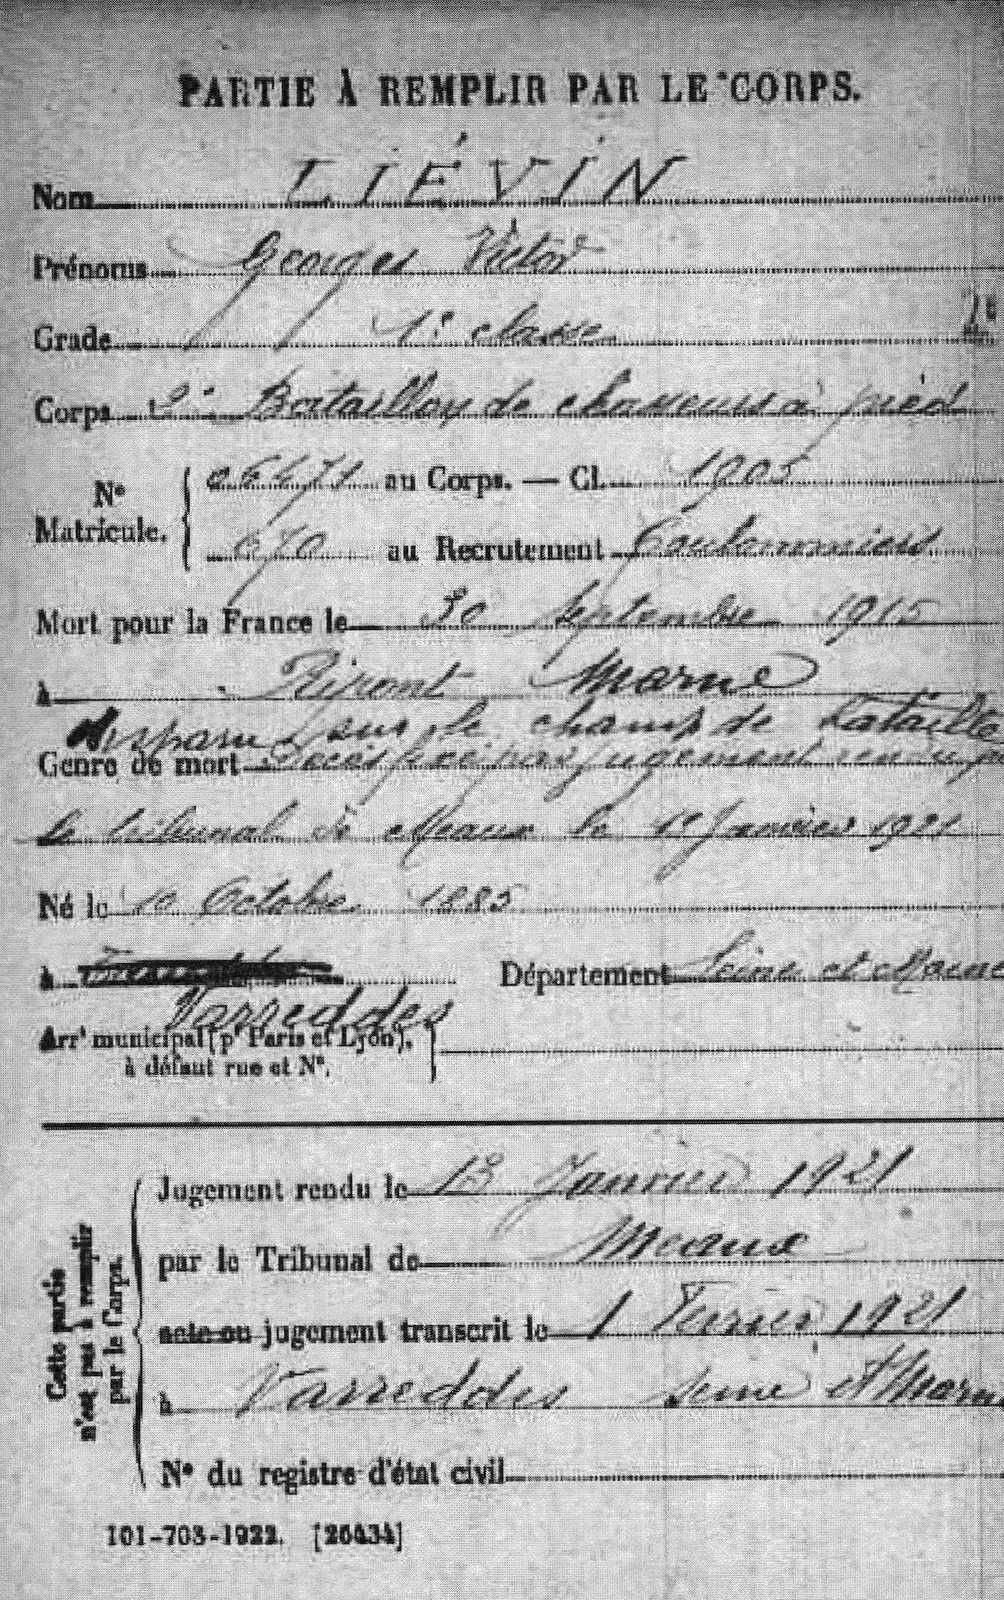 PARTIE À REMPLIR PAR LE CORPS.
Nom LIÉVIN
Prénoms Georges Victor
Grade 1e classe
Corps 2e Bataillon de chasseurs à pied
Nº Matricule. 06471 au Corps. — Cl. 1905
670 au Recrutement Coulommiers
Mort pour la France le 30 septembre 1915
à Ripont Marne
disparu sur le champ de bataille
Genre de mort Décès fixé par jugement rendu par
le tribunal de Meaux le Janvier 1921
Né le 10 Octobre 1885
à Département Seine et Marne
Varreddes
Arrt municipal (pr Paris et Lyon),
à défaut rue et Nº.
Cette partie n'est pas à remplir par le Corps.
Jugement rendu le 13 Janvier 1921
par le Tribunal de Meaux
acte ou jugement transcrit le 1 Février 1921
à Varreddes Seine et Marne
Nº du registre d'état civil
101-708-1922. [26434]